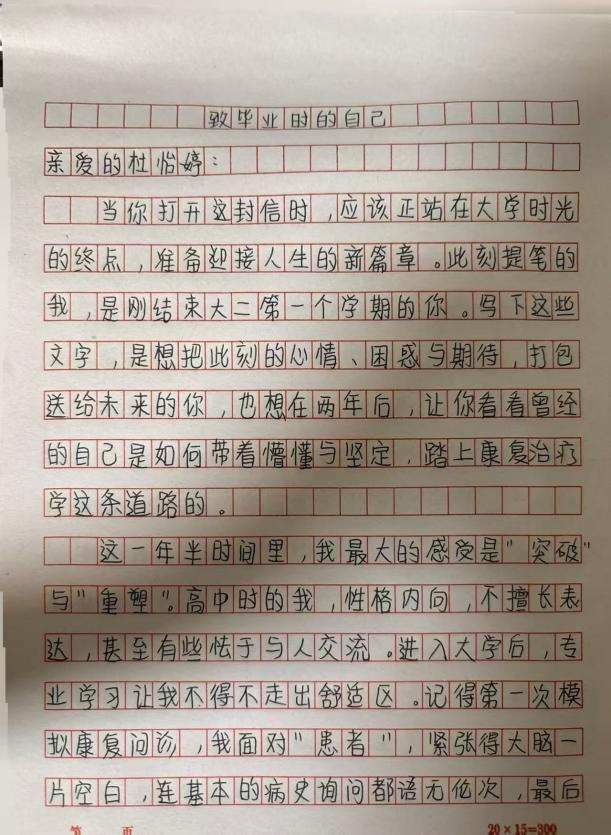 致毕业时的自己
亲爱的杜怡婷：
当你打开这封信时，应该正站在大学时光
的终点，准备迎接人生的新篇章。此刻提笔的
我，是刚结束大二第一个学期的你。写下这些
文字，是想把此刻的心情、困惑与期待，打包
送给未来的你，也想在两年后，让你看看曾经
的自己是如何带着懵懂与坚定，踏上康复治疗
学这条道路的。
这一年半时间里，我最大的感受是"突破"
与"重塑"。高中时的我，性格内向，不擅长表
达，甚至有些怯于与人交流。进入大学后，专
业学习让我不得不走出舒适区。记得第一次模
拟康复问诊，我面对"患者"，紧张得大脑一
片空白，连基本的病史询问都语无伦次，最后
第 页
20×15=300